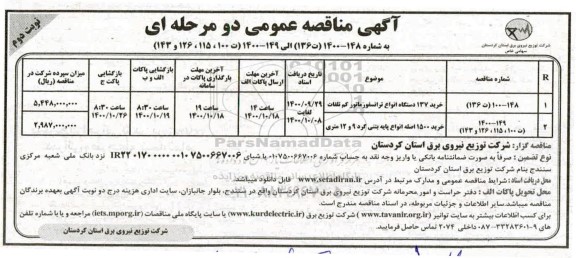 آگهی مناقصه عمومی دو مرحله ای
به شماره ۱۴۸-۱۴۰۰ (ت۱۳۶) الی ۱۴۹-۱۴۰۰ (ت ۱۰۰، ۱۱۵، ۱۲۶ و ۱۴۳)
نوبت دوم
شرکت توزیع نیروی برق استان کردستان
سهامی خاص
R
شماره مناقصه
موضوع
تاریخ دریافت اسناد
آخرین مهلت ارسال پاکات الف
آخرین مهلت بارگذاری پاکات در سامانه
بازگشایی پاکات الف و ب
بازگشایی پاکت ج
میزان سپرده شرکت در مناقصه (ریال)
۱
۱۴۸-۱۴۰۰ (ت ۱۳۶)
خرید ۱۳۷ دستگاه انواع ترانسفورماتور کم تلفات
۱۴۰۰/۰۹/۲۹ لغایت ۱۴۰۰/۱۰/۰۸
ساعت ۱۴ ۱۴۰۰/۱۰/۱۸
ساعت ۱۹ ۱۴۰۰/۱۰/۱۸
ساعت ۸:۳۰ ۱۴۰۰/۱۰/۱۹
ساعت ۸:۳۰ ۱۴۰۰/۱۰/۲۶
۵,۴۴۸,۰۰۰,۰۰۰
۲
۱۴۹-۱۴۰۰ (ت ۱۰۰، ۱۱۵، ۱۲۶ و ۱۴۳)
خرید ۱۵۰۰ اصله انواع پایه بتنی گرد ۹ و ۱۲ متری
۲,۹۸۷,۰۰۰,۰۰۰
ParsNamadData
مناقصه گزار: شرکت توزیع نیروی برق استان کردستان
نوع تضمین: صرفاً به صورت ضمانتنامه بانکی یا واریز وجه نقد به حساب شماره ۰۱۰۷۵۰۰۶۶۷۰۰۶ با شبای IR۲۲۰۱۷۰۰۰۰۰۰۰۱۰۷۵۰۰۶۶۷۰۰۶ نزد بانک ملی شعبه مرکزی
سنندج بنام شرکت توزیع برق استان کردستان
محل دریافت اسناد: شرایط مناقصه عمومی و مدارک مرتبط در آدرس www.setadiran.ir قابل دانلود میباشد.
محل تحویل پاکات الف: دفتر حراست و امور محرمانه شرکت توزیع نیروی برق استان کردستان واقع در سنندج، بلوار جانبازان، سایت اداری هزینه درج دو نوبت آگهی بعهده برندگان
مناقصه میباشد. سایر اطلاعات و جزئیات مربوطه، در اسناد مناقصه مندرج است.
برای کسب اطلاعات بیشتر به سایت توانیر (www.tavanir.org.ir) شرکت توزیع برق (www.kurdelectric.ir) یا سایت پایگاه ملی مناقصات (iets.mporg.ir) مراجعه و یا با شماره تلفن
های ۹-۳۳۲۸۳۶۰۱-۰۸۷ داخلی ۲۰۷۴ تماس حاصل فرمایید.
شرکت توزیع نیروی برق استان کردستان